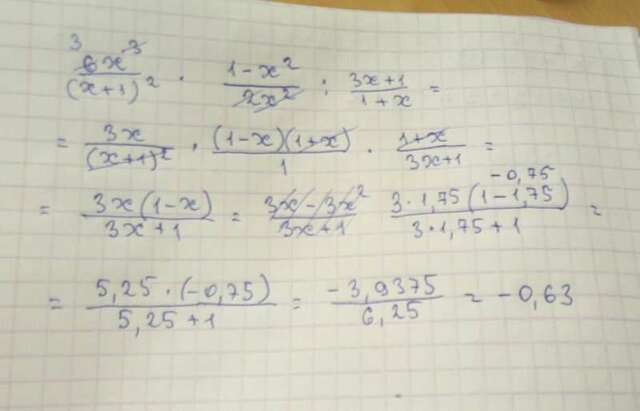 3
6x³/(x+1)² · (1-x²)/(2x²) : (3x+1)/(1+x) =
= 3x/(x+1)² · (1-x)(1+x)/1 · (1+x)/(3x+1) =
-0,75
= 3x(1-x)/(3x+1) = (3x-3x²)/(3x+1) 3·1,75(1-1,75)/(3·1,75+1) =
= 5,25·(-0,75)/(5,25+1) = -3,9375/6,25 = -0,63